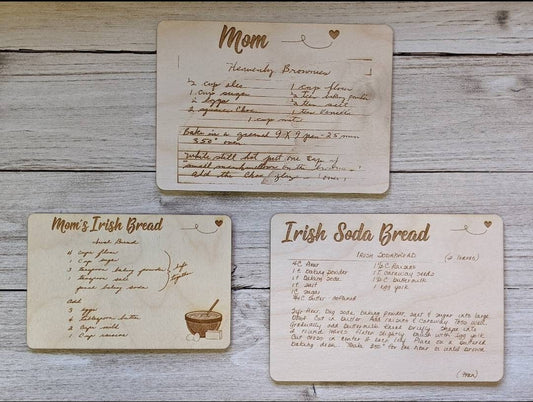 Mom
Heavenly Brownies
1/2 cup oleo 1 cup flour
1 cup sugar 1/2 tsn baking powder
2 eggs 1/2 tsn salt
2 squares Choc 1 tsn Vanilla
1 cup nuts
Bake in a greased 9 X 9 pan - 25 min
350° oven
While still hot put one cup of
small marshmallows on the brownies
add the Choc glaze (over)
Mom's Irish Bread
Irish Bread
4 Cups flour
1 Cup sugar
3 teaspoon baking powder
1 teaspoon salt
baking soda
Sift
together
Add
3 eggs
butter
2 Cups milk
1 Cup raisins
Irish Soda Bread
IRISH SODABREAD (2 loaves)
4C flour 1 1/2 C Raisins
1t baking powder 1t caraway seeds
1t baking soda 1 3/4 C Buttermilk
1t salt 1 egg yolk
1C sugar
1/4C butter softened
Sift flour, Bkg soda, baking powder, salt & sugar into large
bowl. Cut in butter. Add raisins & caraway. Toss well.
Gradually add buttermilk. Knead briefly. Shape into
2 round loaves. Flatten slightly. Brush with egg yolk.
Cut cross in center of each loaf. Place on a buttered
baking dish. Bake 350° for one hour or until brown.
(over)